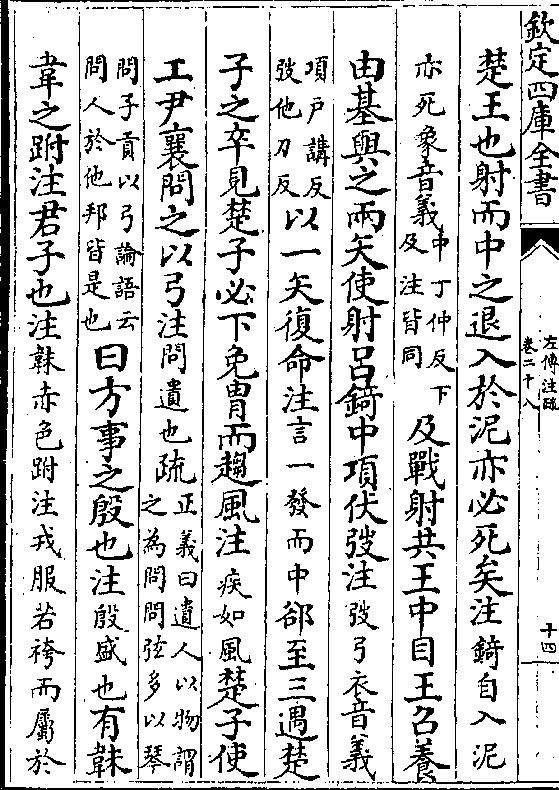 欽定四庫全書
左傳注疏
卷二十八
十四
楚王也射而中之退入於泥亦必死矣注錡自入泥
亦死象音義中丁仲反下
及注皆同及戰射共王中目王召養
由基與之兩矢使射呂錡中項伏弢注弢弓衣音義
項戶講反
弢他刀反以一矢復命注言一發而中郤至三遇楚
子之卒見楚子必下免胄而趨風注疾如風楚子使
工尹襄問之以弓注問遺也疏正義曰遺人以物謂
之為問問弦多以琴
問子貢以弓論語云
問人於他邦皆是也曰方事之殷也注殷盛也有韎
韋之跗注君子也注韎赤色跗注戎服若袴而屬於